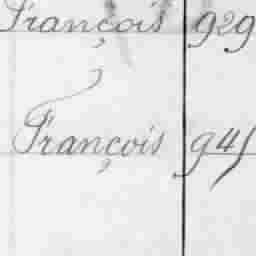 François 929
François 945